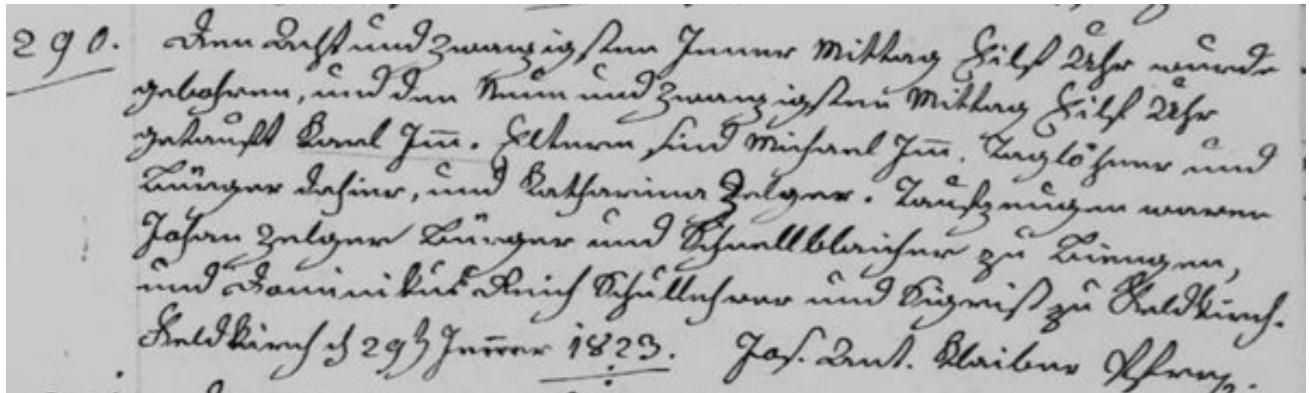 290. Den Acht und zwanzigsten Jenner Mittag Eilf Uhr wurde
gebohren, und den Neun und zwanzigsten Mittag Eilf Uhr
getauft Karl Im̅. Eltern sind Michael Im̅. Taglöhner und
Bürger dahier, und Katharina Zelger. Taufzeugen waren
Johan Zelger Bürger und Schnellblaicher zu Biengen,
und Dominikus Schullehrer und Sigrist zu Feldkirch.
Feldkirch d 29t Jenner 1823. Jos. Ant. Klaiber Pfrrz.